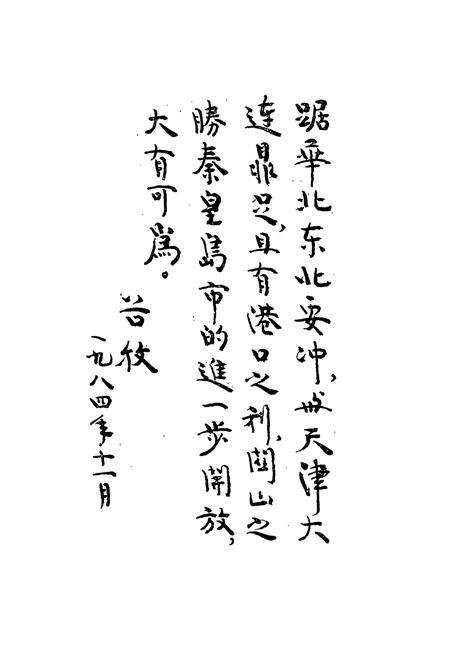 踞華北东北要冲，毋天津大
连鼎足，具有港口之利，関山之
勝秦皇島市的進一步開放，
大有可爲。
谷牧
一九八四年十一月